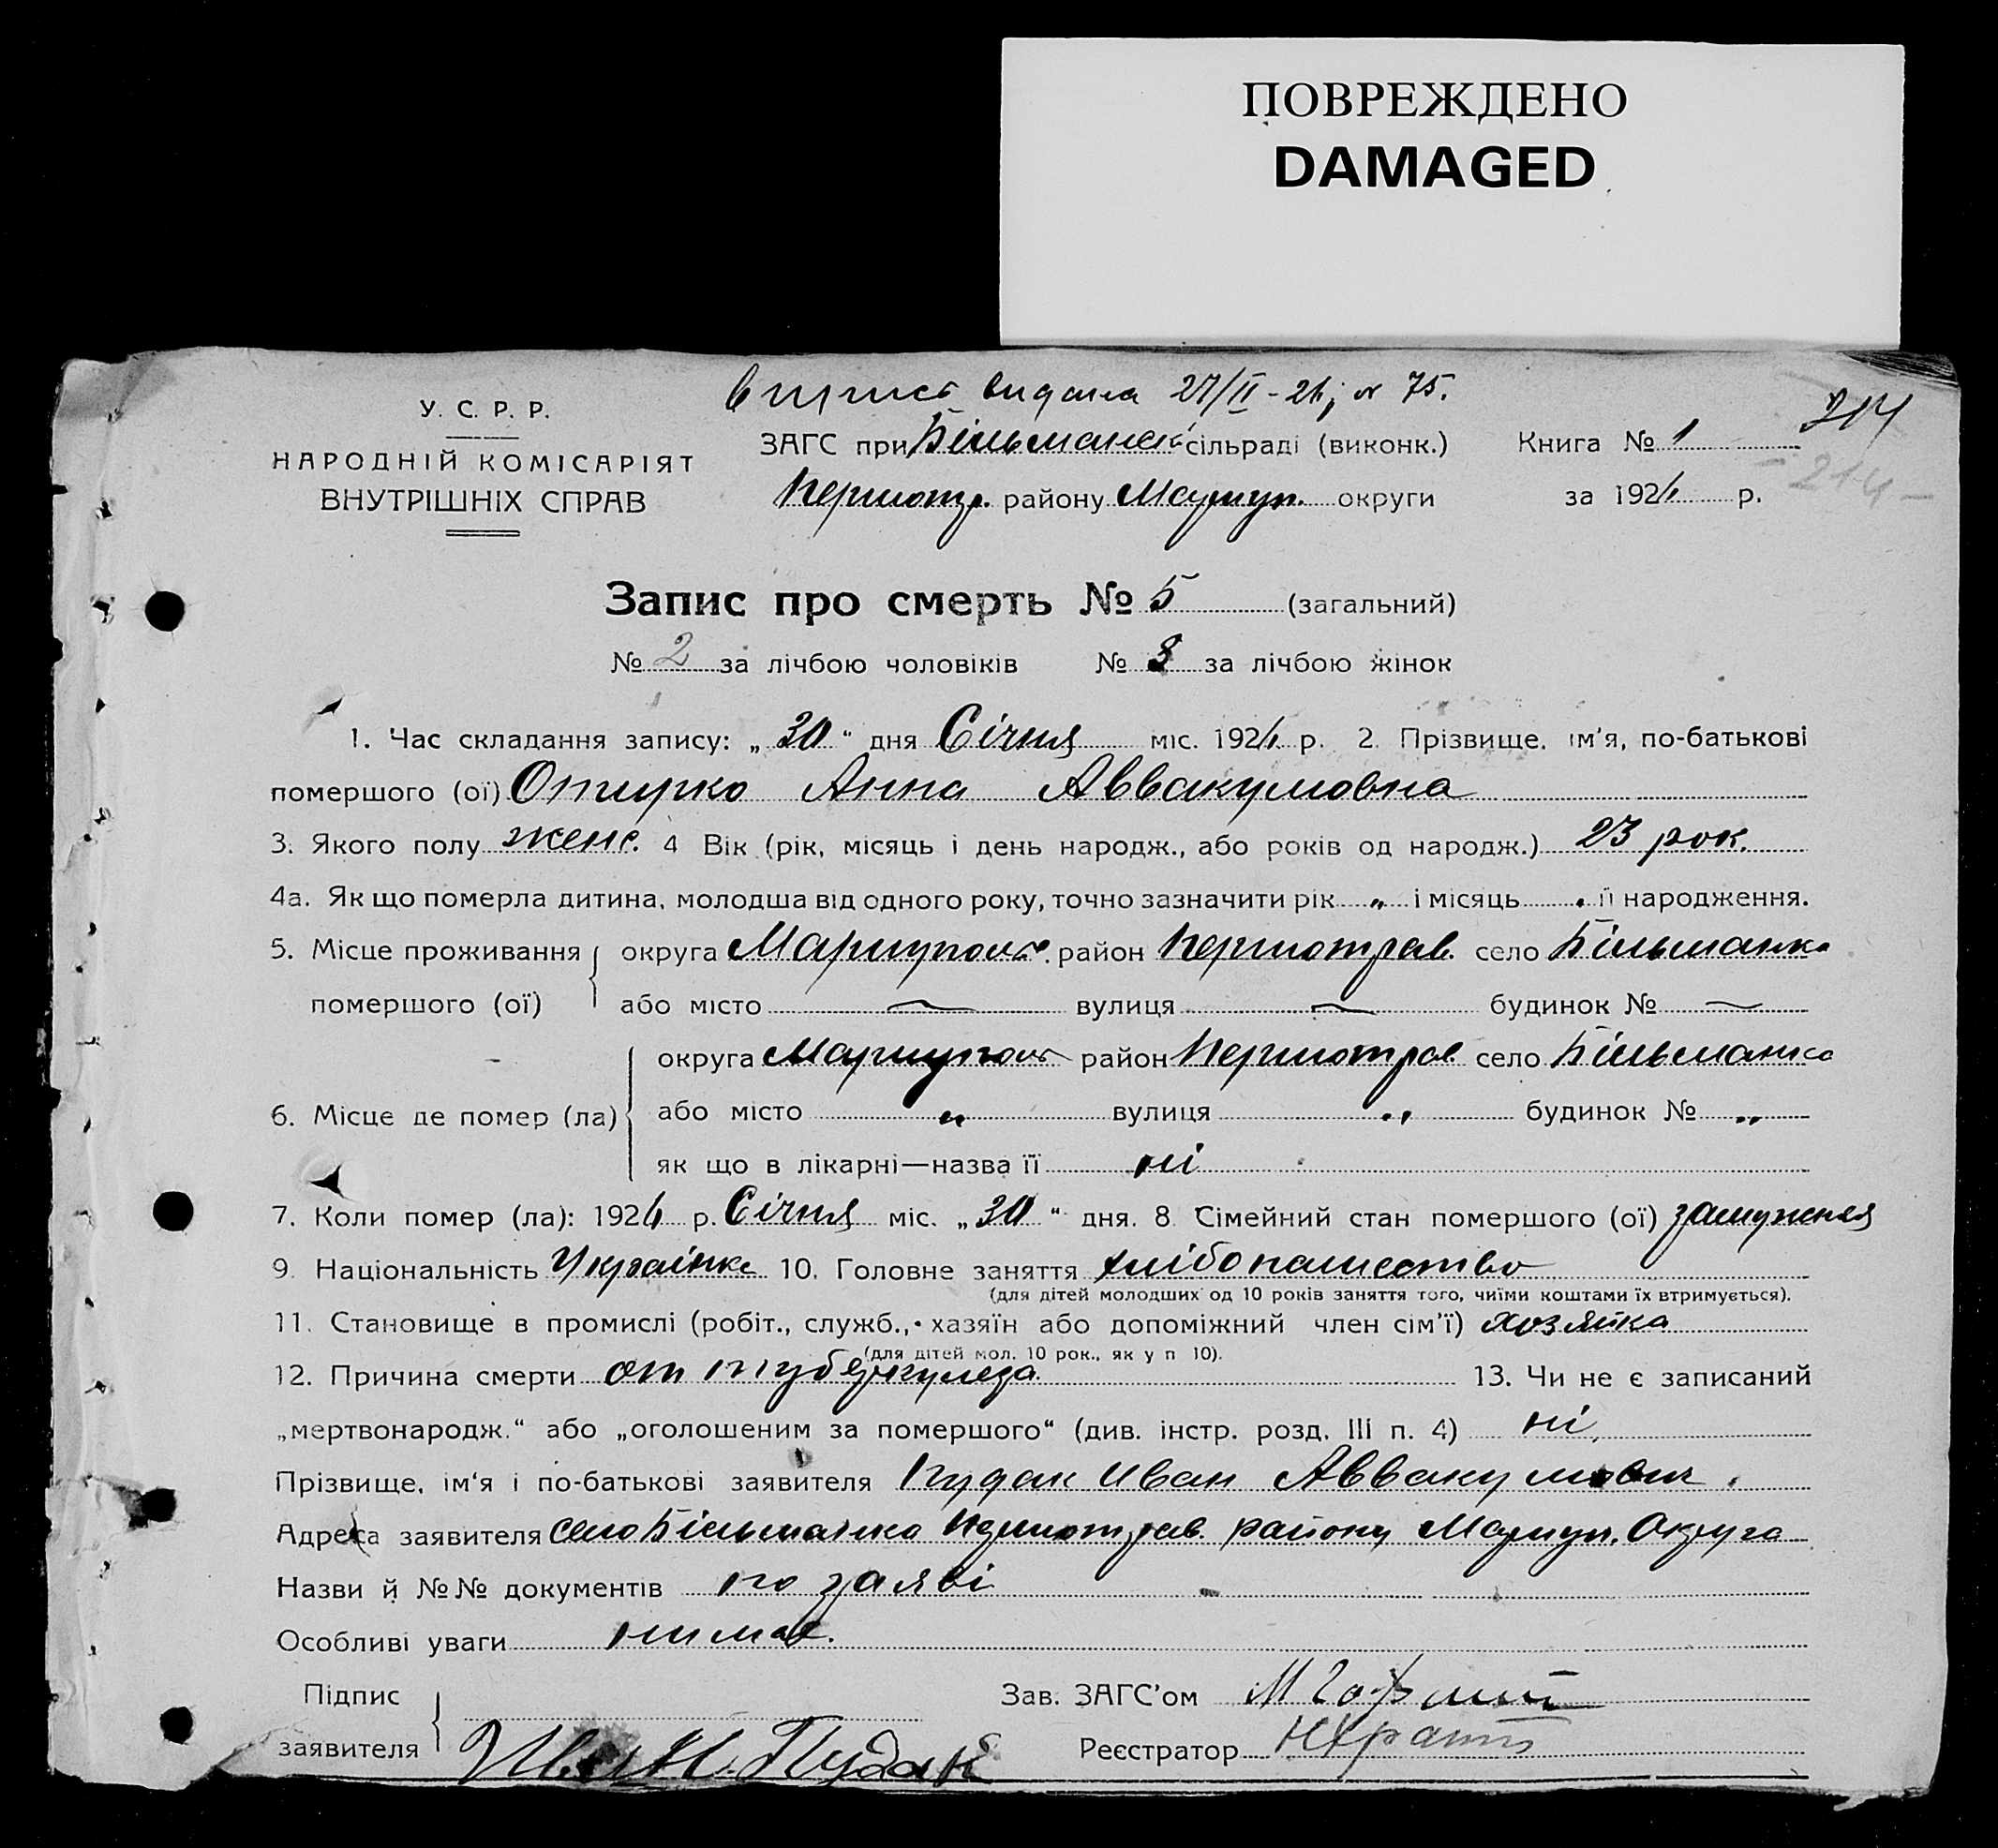 ПОВРЕЖДЕНО
DAMAGED
видана 27/II-26, № 75.
У. С. Р. Р.
НАРОДНІЙ КОМІСАРІЯТ
ВНУТРІШНІХ СПРАВ
ЗАГС при Більманськ сільраді (виконк.)
Першотр. району Маріуп. округи
Книга № 1
214
за 1926 р.
- 214 -
Запис про смерть № 5 (загальний)
№ 2 за лічбою чоловіків № 3 за лічбою жінок
1. Час складання запису: „30“ дня Січня міс. 1926 р. 2. Прізвище, ім'я, по-батькові
помершого (ої) Опирко Анна Аввакумовна
3. Якого полу женс. 4 Вік (рік, місяць і день народж., або років од народж.) 23 рок.
4а. Як що померла дитина, молодша від одного року, точно зазначити рік „ і місяць „ її народження.
5. Місце проживання помершого (ої) округа Маріупольс. район Першотрав. село Більманка
або місто — вулиця — будинок № —
6. Місце де помер (ла) округа Маріуполь район Першотрав село Більманка
або місто „ вулиця „ будинок № „
як що в лікарні—назва її ні
7. Коли помер (ла): 1926 р. Січня міс. „30“ дня. 8. Сімейний стан помершого (ої) замужняя
9. Національність Українка 10. Головне заняття хлібопашество
(для дітей молодших од 10 років заняття того, чиїми коштами їх втримується).
11. Становище в промислі (робіт., служб., хазяїн або допоміжний член сім'ї) хозяйка
(для дітей мол. 10 рок., як у п 10).
12. Причина смерти от туберкулеза 13. Чи не є записаний
„мертвонародж.“ або „оголошеним за помершого“ (див. інстр. розд. III п. 4) ні,
Прізвище, ім'я і по-батькові заявителя Пудак Иван Аввакумович.
Адреса заявителя село Більманка Першотрав. району Маріуп. Округа
Назви й №№ документів по заяві
Особливі уваги нимае.
Підпис заявителя Иван Пудак
Зав. ЗАГС'ом
Реєстратор